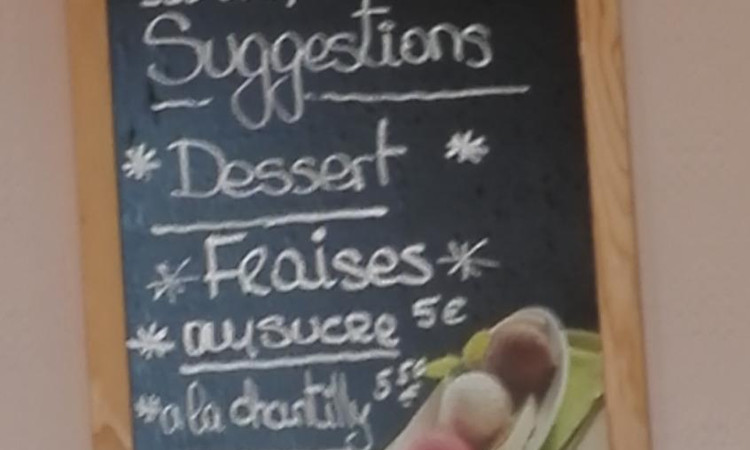 Suggestions
* Dessert *
* Fraises *
* au sucre 5€
* a la chantilly 5